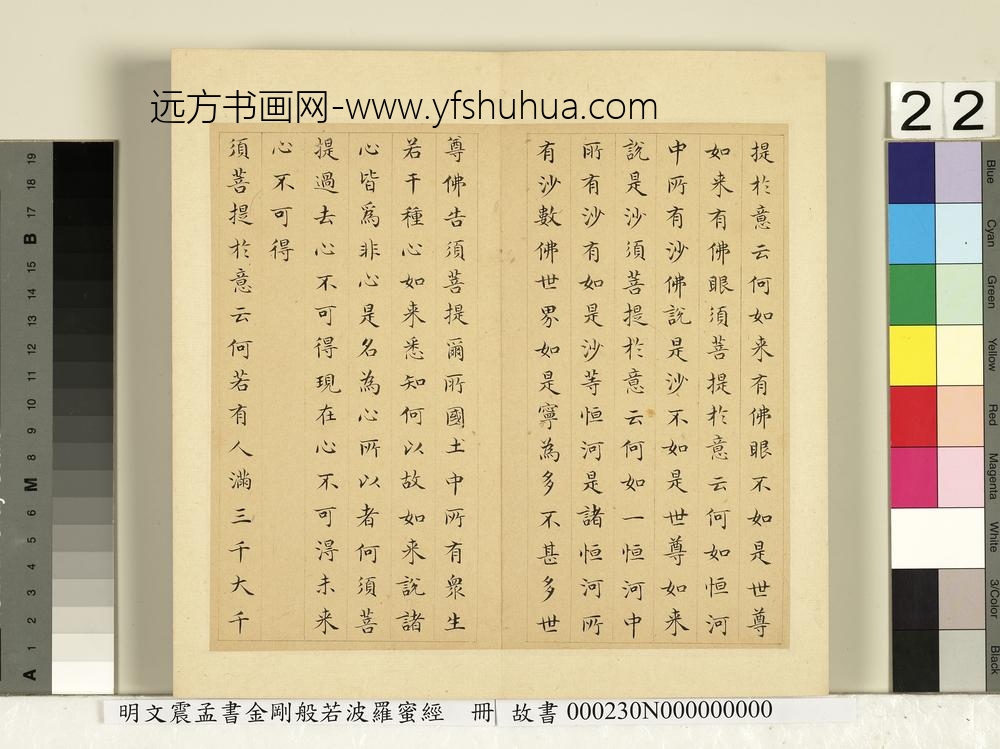 远方书画网-www.yfshuhua.com
提於意云何如来有佛眼不如是世尊
如来有佛眼須菩提於意云何如恒河
中所有沙佛說是沙不如是世尊如来
說是沙須菩提於意云何如一恒河中
所有沙有如是沙等恒河是諸恒河所
有沙數佛世界如是寧為多不甚多世
尊佛告須菩提爾所國土中所有衆生
若干種心如来悉知何以故如来說諸
心皆爲非心是名為心所以者何須菩
提過去心不可得現在心不可得未来
心不可得
須菩提於意云何若有人滿三千大千
明文震孟書金剛般若波羅蜜經 冊 故書 000230N000000000
22
Blue
Cyan
Green
Yellow
Red
Magenta
White
3/Color
Black
A 1 2 3 4 5 6 M 8 9 10 11 12 13 14 15 B 17 18 19